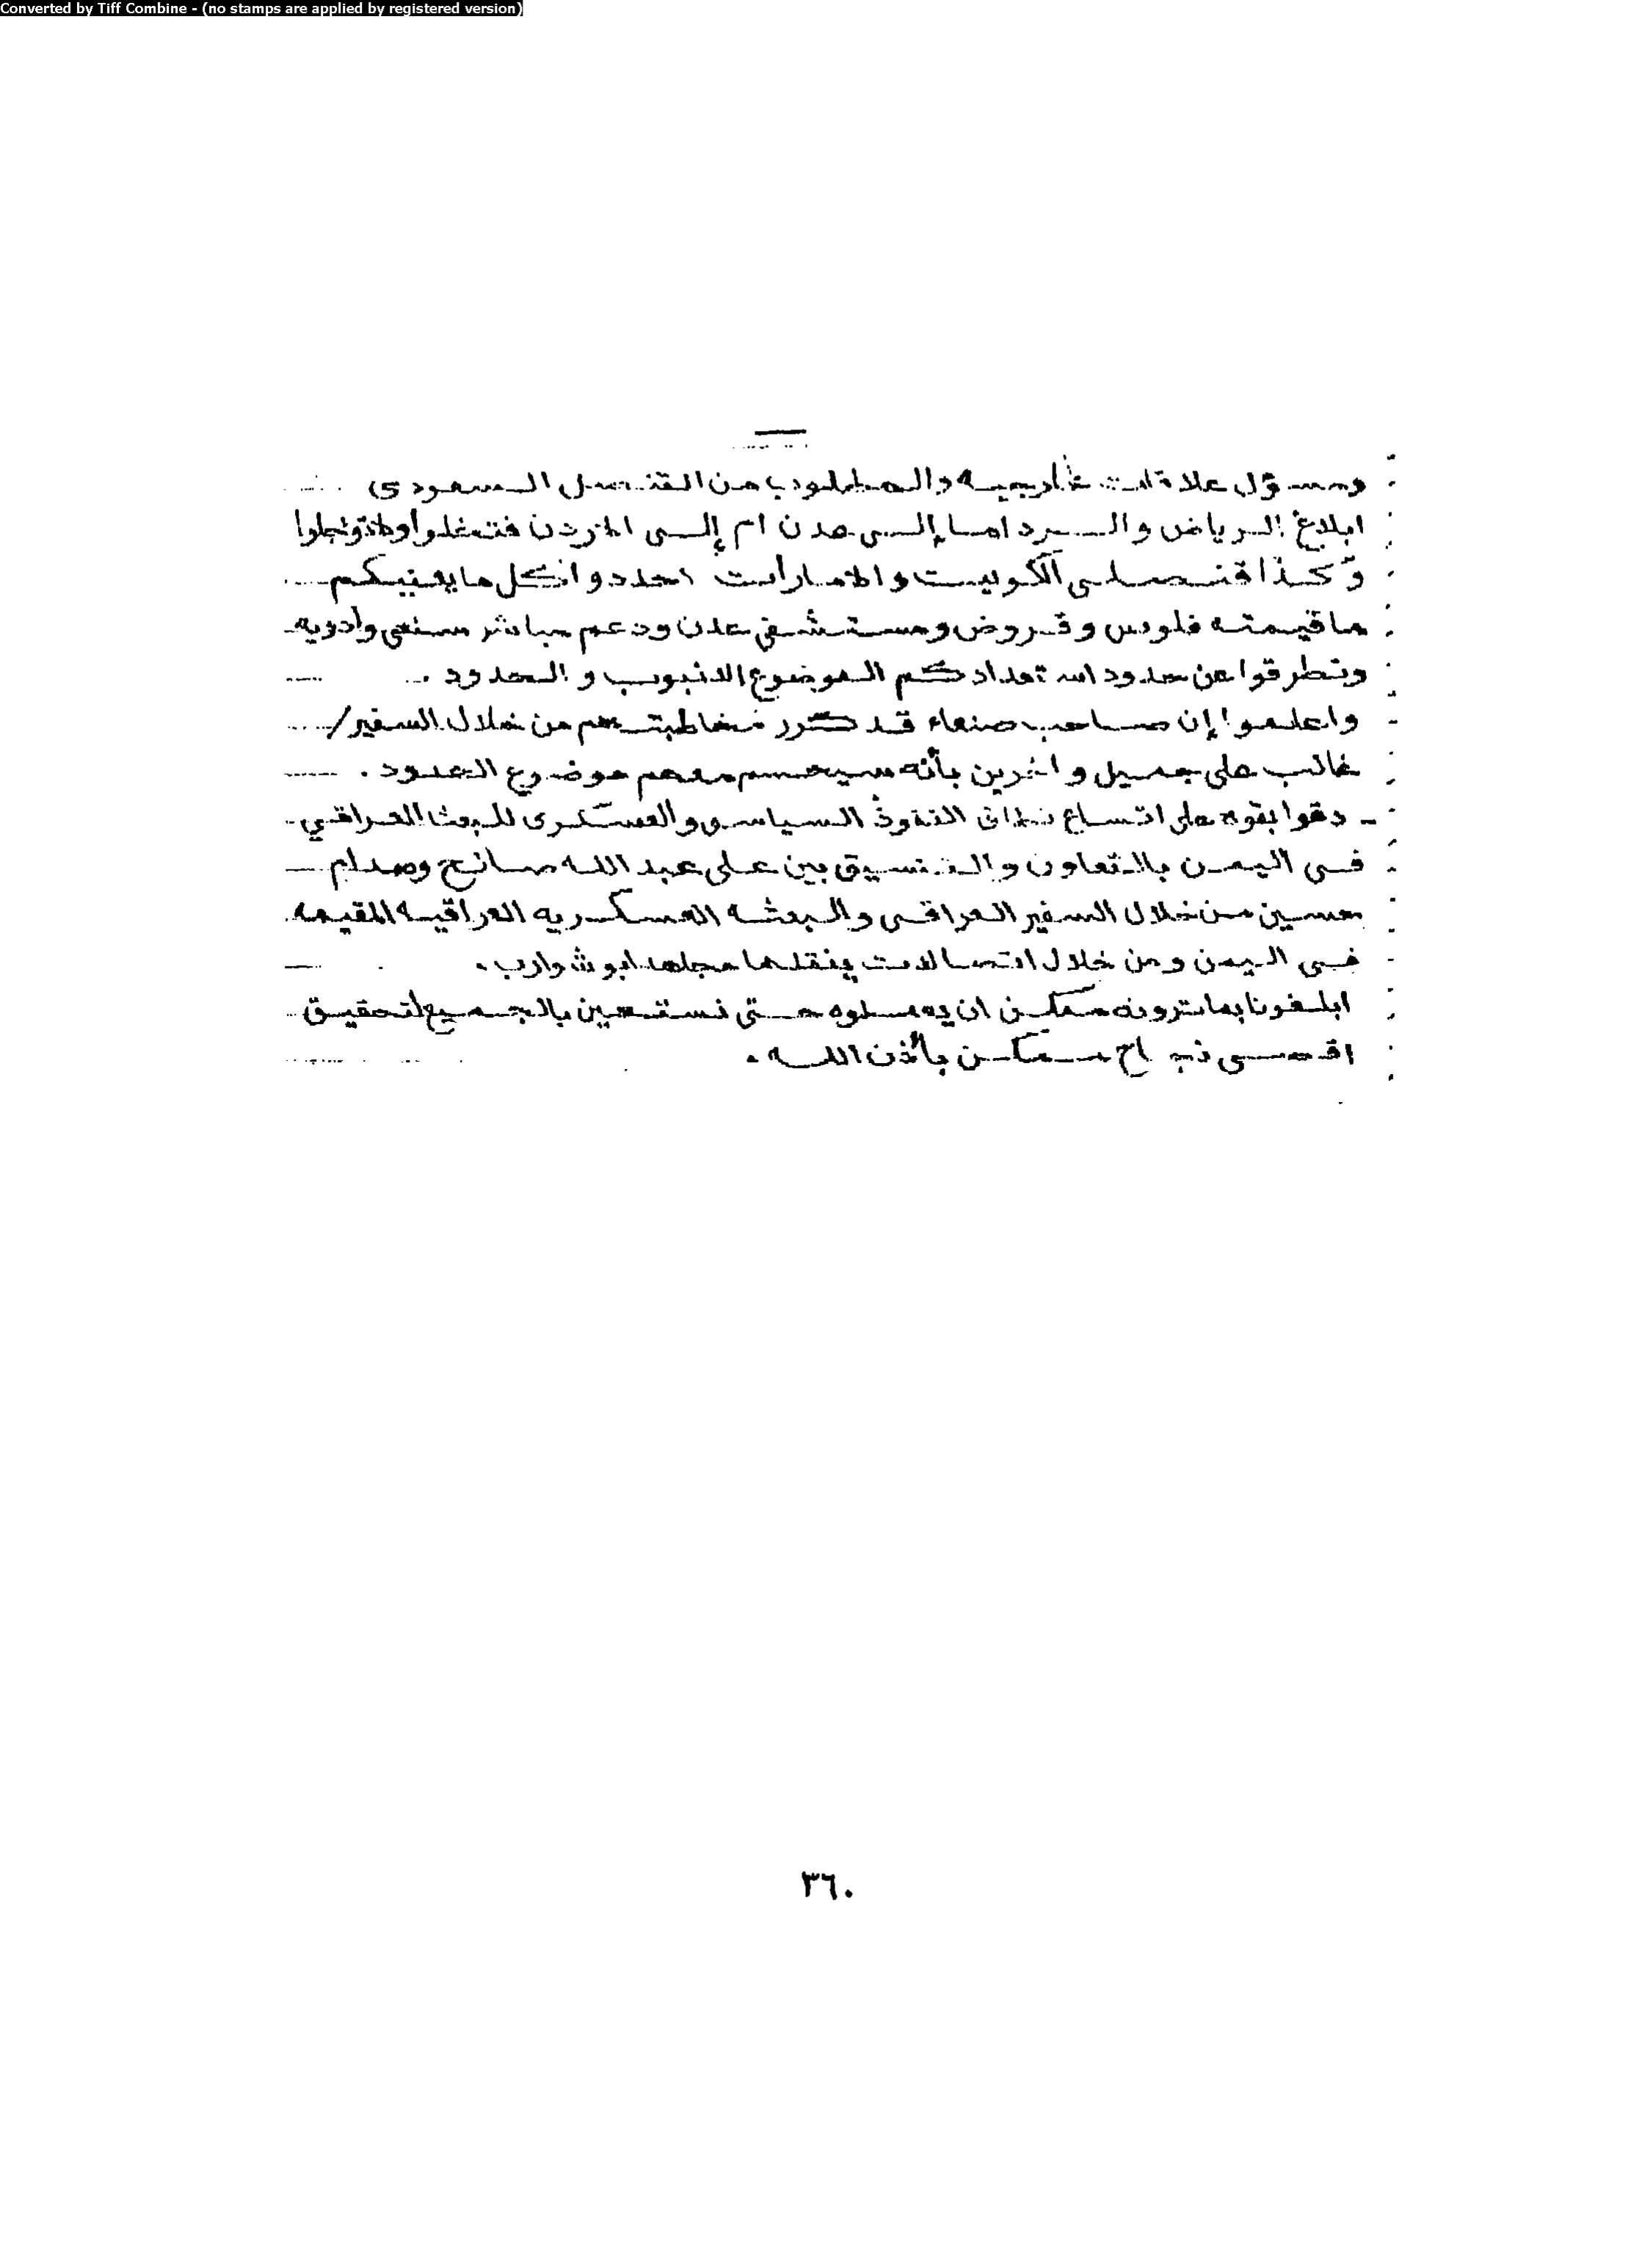 Converted by Tiff Combine - (no stamps are applied by registered version)
ومسؤل علاقات خارجيه والمطلوب من القنصل السعودى
ابلاغ الرياض والرد اما إلى عدن ام إلى الاردن
وكذا قنصلى الكويت والامارات كل ما يعنيكم
ما قيمته فلوس وقروض ومستشفى عدن ودعم مباشر سنعى وادويه
وتطرقوا عن حدود استعدادكم الموضوع الانبوب والحدود .
واعلموا إن صاحب صنعاء قد كرر مخاطبتهم من خلال السفير /
غالب على جميل واخرين بأنه سيحسم معهم موضوع الحدود .
- دقوا بقوه على اتساع نطاق النفوذ السياسى والعسكرى للبعث العراقي
فى اليمن بالتعاون والتنسيق بين على عبد الله صالح وصدام
حسين من خلال السفير العراقى والبعثه العسكريه العراقيه المقيمه
فى اليمن ومن خلال اتصالات ينقلها مجاهد ابو شوارب .
ابلغونا بما ترونه ممكن ان يعملوه حتى نستعين بالجميع لتحقيق
اقصى نجاح ممكن بأذن الله .
٣٦٠